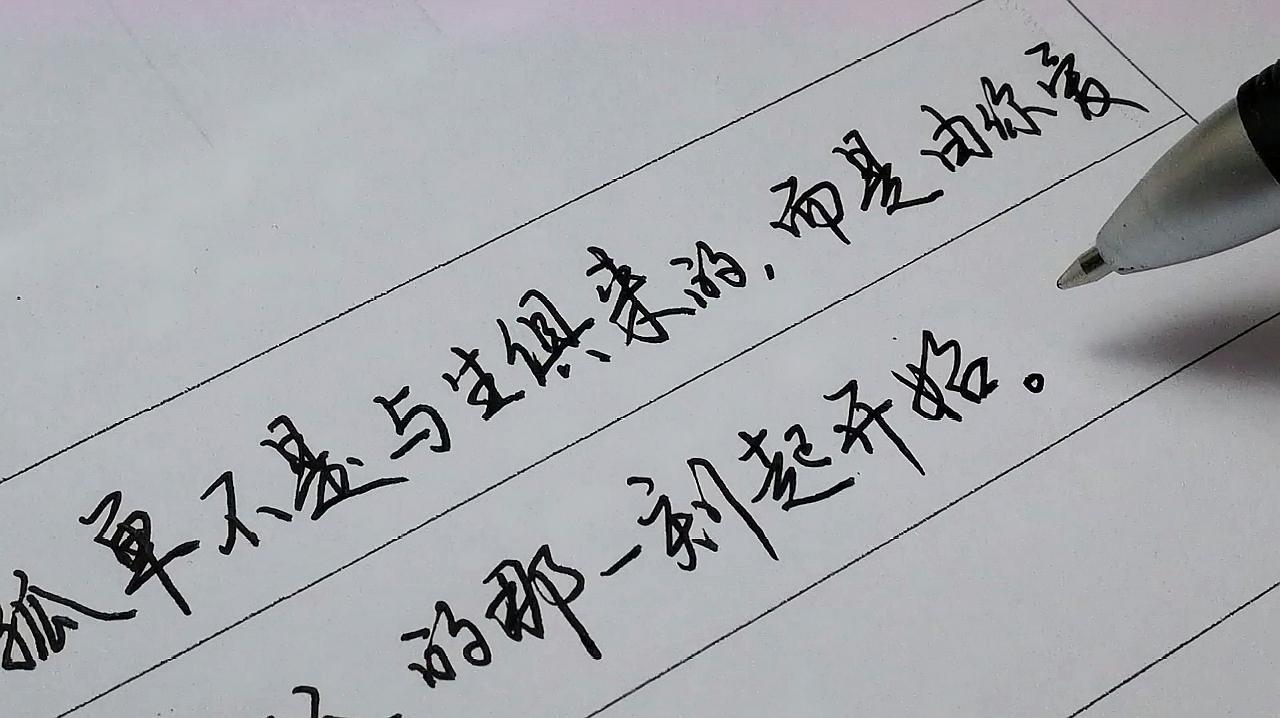 孤单不是与生俱来的,而是由你爱
的那一刻起开始。